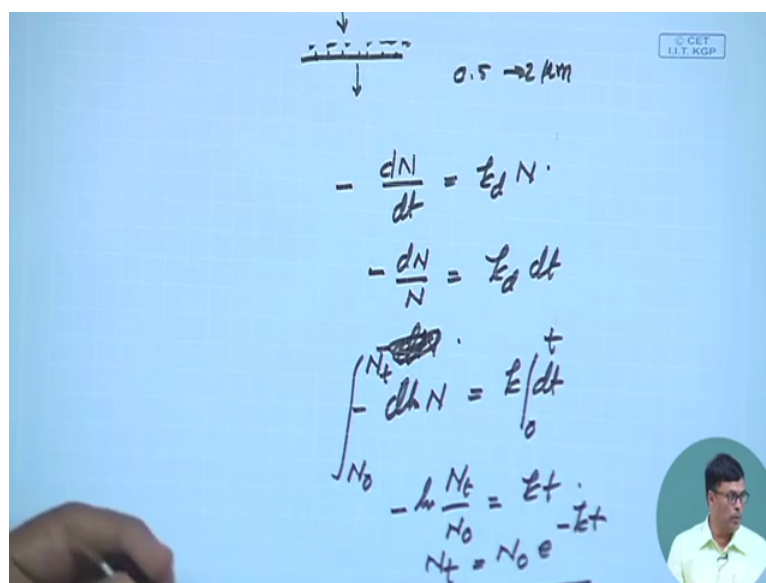 © CET
I.I.T. KGP
0.5 → 2 μm
- dN/dt = k_d N.
- dN/N = k_d dt
∫_{N_0}^{N_t} - dln N = k ∫_0^t dt
- ln N_t/N_0 = kt.
N_t = N_0 e^{-kt}